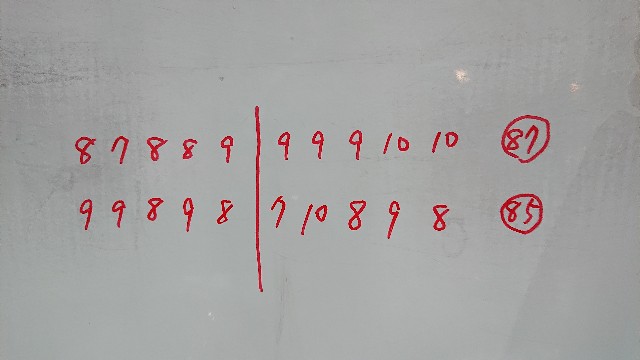 8 7 8 8 9 | 9 9 9 10 10 87
9 9 8 9 8 | 7 10 8 9 8 85